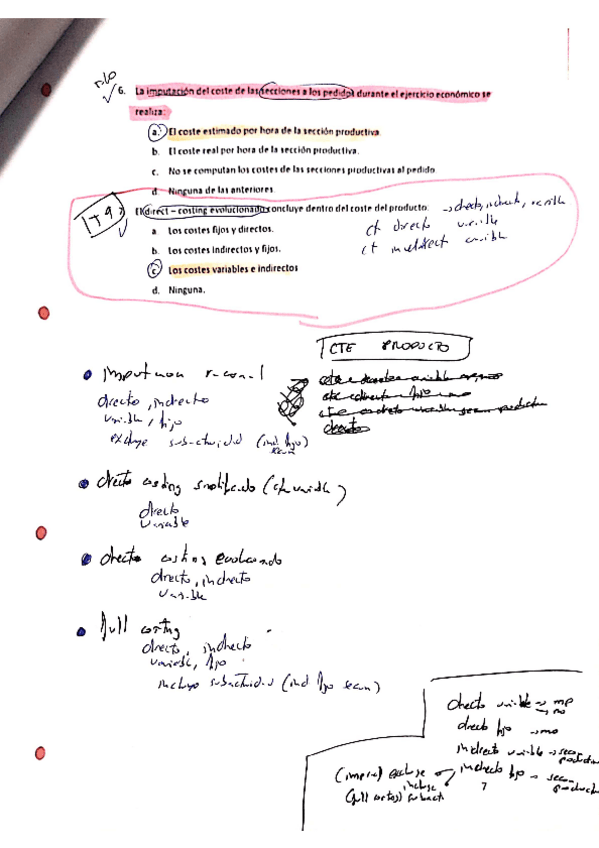 6. La imputación del coste de las secciones a los pedidos durante el ejercicio económico se
realiza:
a. El coste estimado por hora de la sección productiva
b. El coste real por hora de la sección productiva.
c. No se computan los costes de las secciones productivas al pedido
d. Ninguna de las anteriores
T9 7 El direct – costing evolucionado concluye dentro del coste del producto: → directo, indirecto, variable
a Los costes fijos y directos. ct directo variable
b. Los costes indirectos y fijos. ct indirect variable
c Los costes variables e indirectos
d. Ninguna.
CTE PRODUCTO
directo, indirecto
variable, fijo
excluye subactividad (ind fijo secc)
directo costing (cte variable)
directo
variable
directo costing evolucionado
directo, indirecto
variable
full costing
directo, indirecto
variable, fijo
incluye subactividad (ind fijo secun)
directo variable → mp
mo
directo fijo → mo
indirecto variable → secc. productiva
indirecto fijo → secc. productiva
excluye
incluye
(full costing) subact